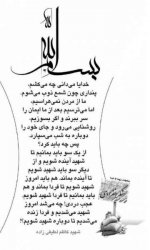 بسم الله
خدایا می‌دانی چه می‌کشم،
پنداری چون شمع ذوب می‌شوم.
ما از مردن نمی‌هراسیم،
اما می‌ترسیم بعد از ما ایمان را
سر ببرند و اگر بسوزیم،
روشنایی می‌رود و جای خود را
دوباره به شب می‌سپارد.
پس چه باید کرد؟
از یک سو باید بمانیم تا
شهید آینده شویم و از
دیگر سو باید شهید شویم
تا آینده بماند. هم باید امروز
شهید شویم تا فردا بماند و هم
باید بمانیم تا فردا شهید نشود
عجب دردی! چه می‌شد امروز
شهید می‌شدیم و فردا زنده
می‌شدیم تا دوباره شهید شویم؟!
شهید کاظم نجفی زاده